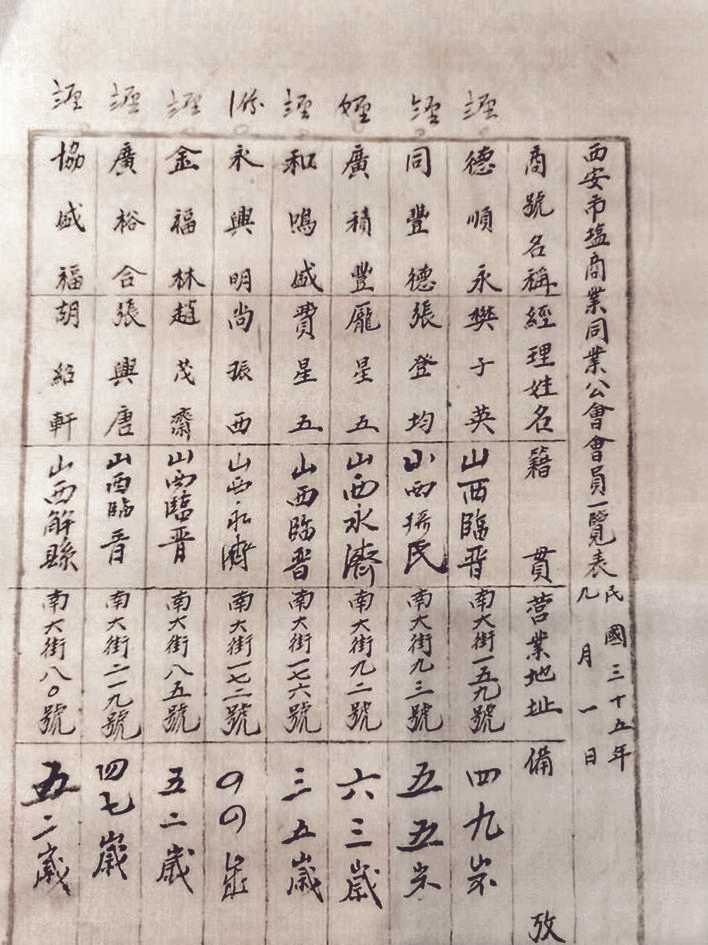 西安市塩商業同業公會會員一覽表 民國三十五年九月一日
商號名稱 經理姓名 籍貫 营業地址 備攷
德順永 樊子英 山西臨晋 南大街一五九號 四九岁
同豐德 張登均 山西 民 南大街九三號 五五岁
廣積豐 龐星五 山西永濟 南大街九二號 六三歲
和鳴盛 費星五 山西临晋 南大街一七六號 三五歲
永興明 尚振西 山西永濟 南大街一七二號
金福林 趙茂齋 山西臨晋 南大街八五號 五二歲
廣裕合 張興唐 山西临晋 南大街二一九號 四七歲
協盛福 胡紹軒 山西解縣 南大街八〇號 五二歲